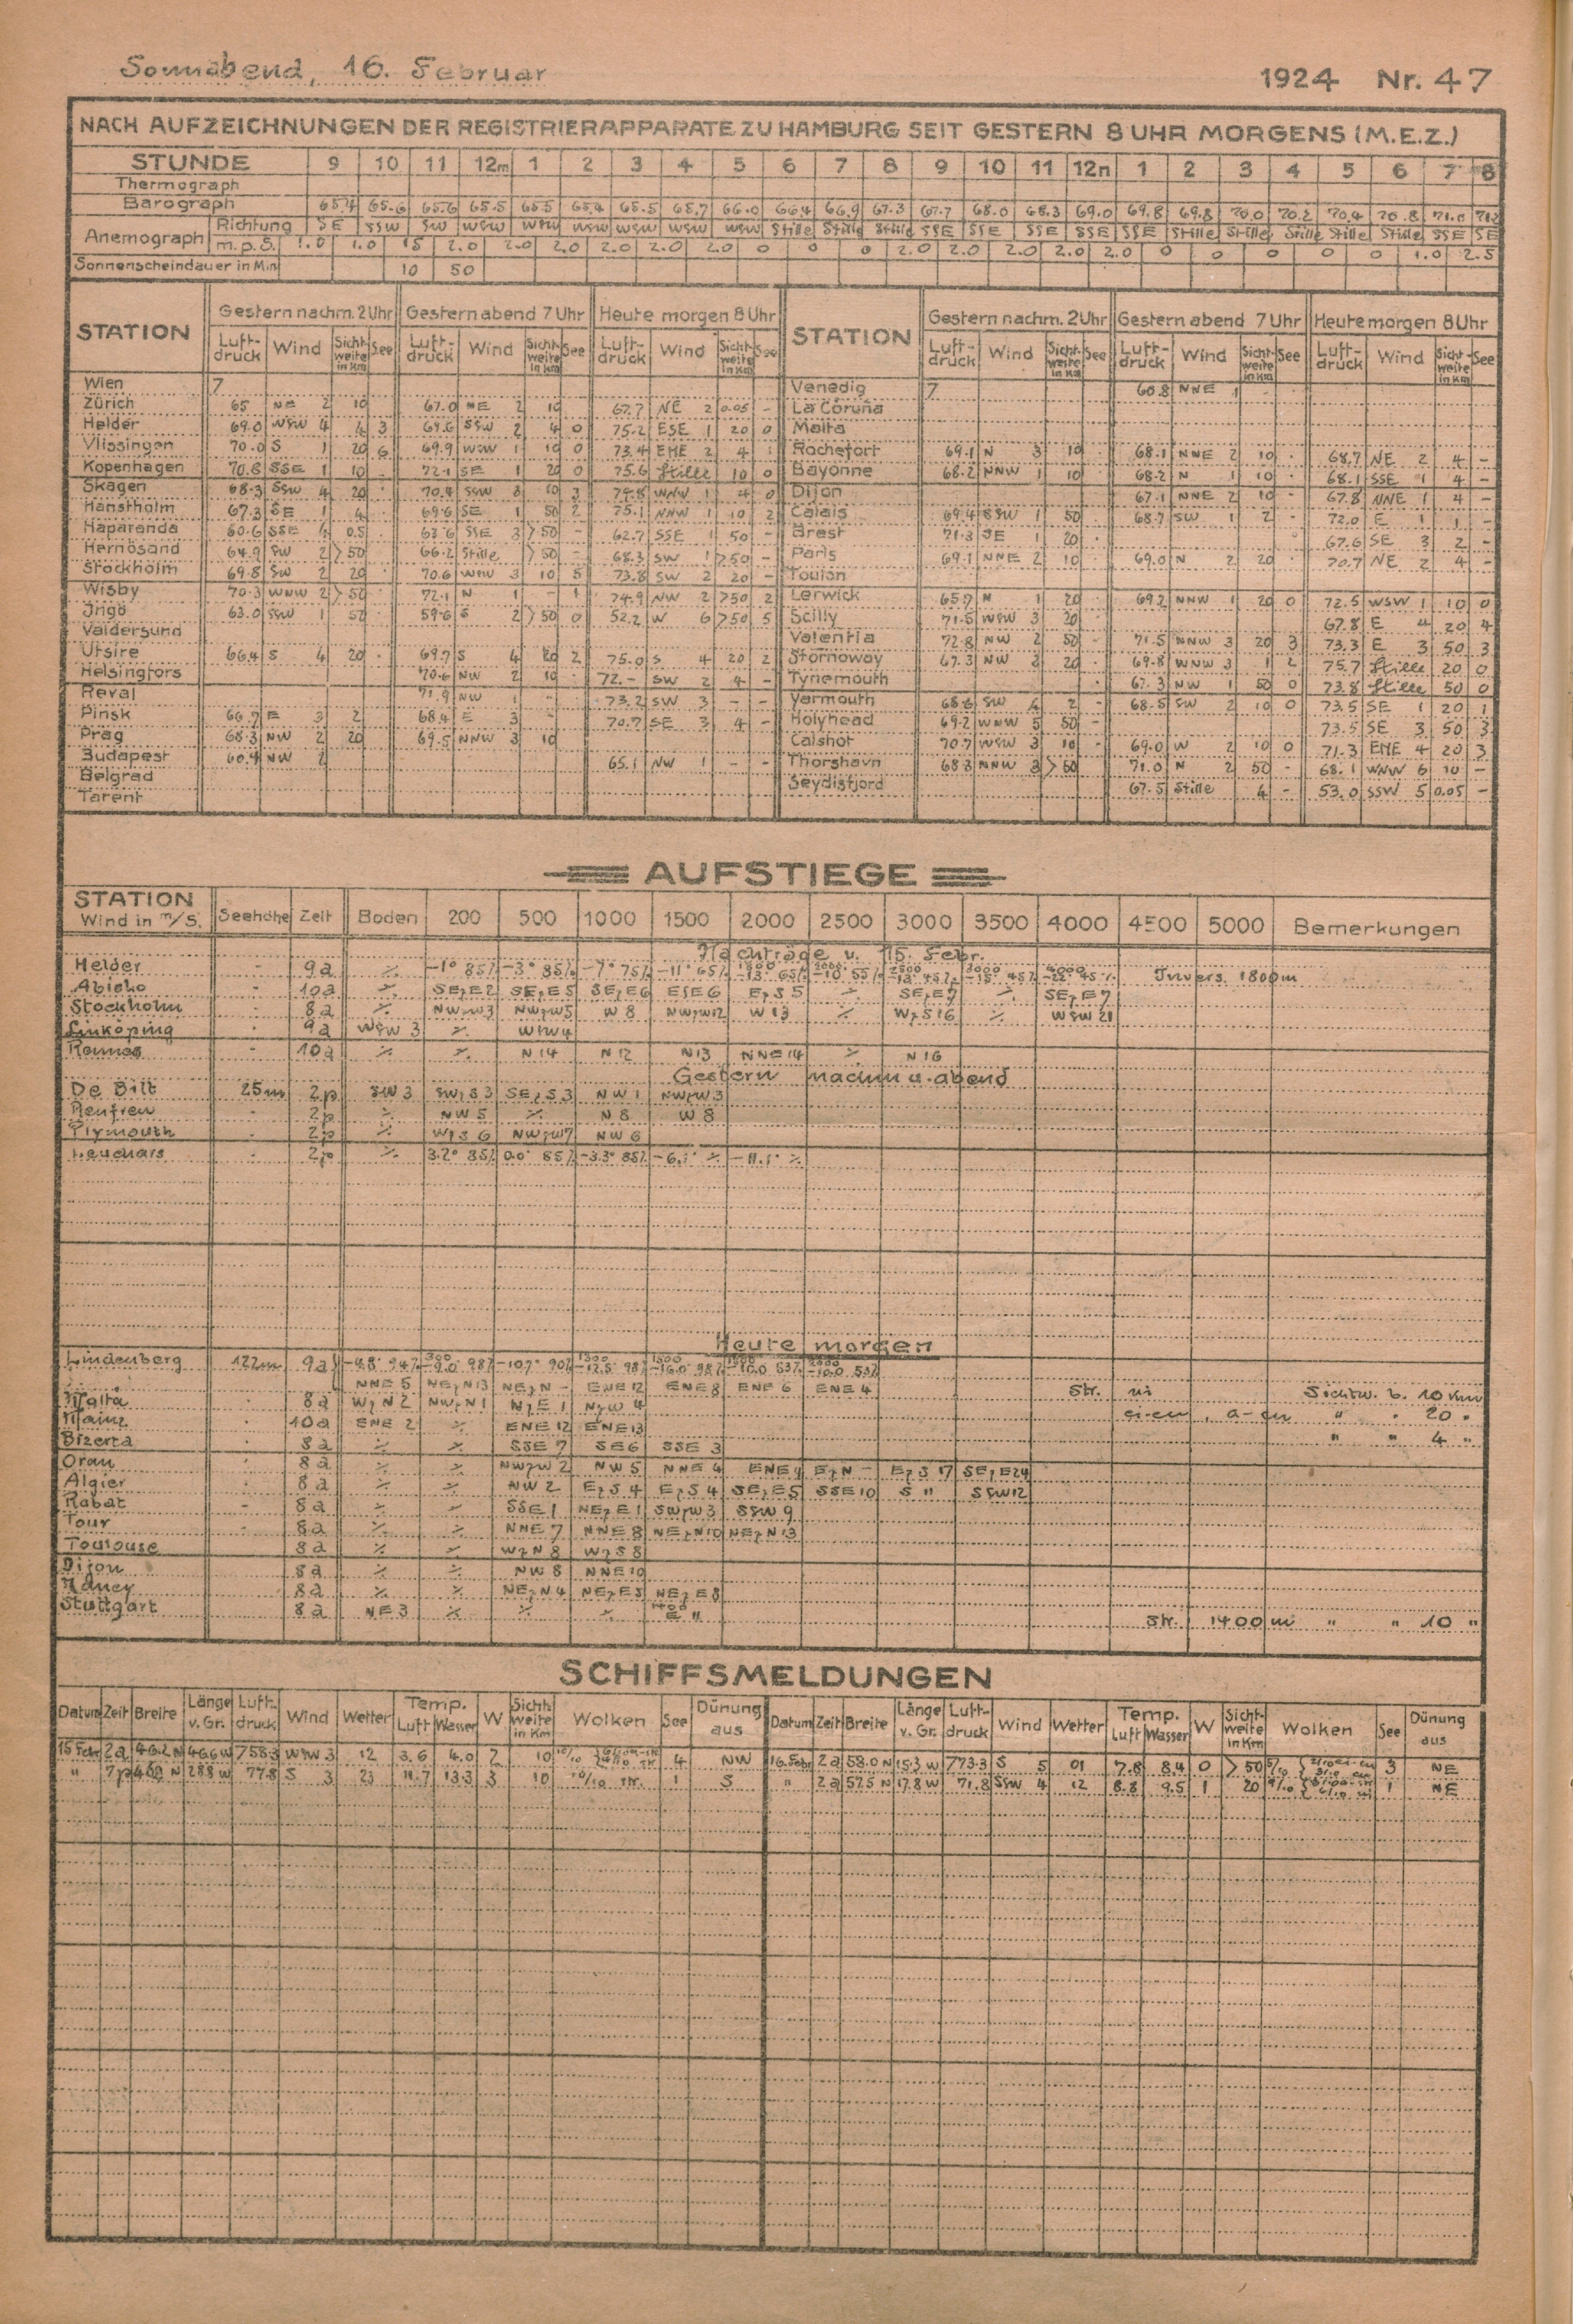 Sonnabend, 16. Februar 1924 Nr. 47
NACH AUFZEICHNUNGEN DER REGISTRIERAPPARATE ZU HAMBURG SEIT GESTERN 8 UHR MORGENS (M.E.Z.)
STUNDE 9 10 11 12m 1 2 3 4 5 6 7 8 9 10 11 12n 1 2 3 4 5 6 7 8
Thermograph
Barograph 65.4 65.6 65.6 65.5 65.5 65.4 65.5 65.7 66.0 66.4 66.9 67.3 67.7 68.0 68.3 69.0 69.8 69.8 70.0 70.2 70.4 70.8 71.0
Anemograph Richtung SE SSW SW WSW WSW WSW WSW WSW WSW Stille Stille Stille SSE SSE SSE SSE SSE Stille Stille Stille Stille Stille SSE SE
m.p.S. 1.0 1.0 15 2.0 2.0 2.0 2.0 2.0 2.0 0 0 0 2.0 2.0 2.0 2.0 2.0 0 0 0 0 0 1.0 2.5
Sonnenscheindauer in Min 10 50
STATION Gestern nachm. 2 Uhr Gestern abend 7 Uhr Heute morgen 8 Uhr STATION Gestern nachm. 2 Uhr Gestern abend 7 Uhr Heute morgen 8 Uhr
Luft-druck Wind Sicht-weite in Km See Luft-druck Wind Sicht-weite in Km See Luft-druck Wind Sicht-weite in Km See Luft-druck Wind Sicht-weite in Km See Luft-druck Wind Sicht-weite in Km See Luft-druck Wind Sicht-weite in Km See
Wien 7 Venedig 7 60.8 NNE 1
Zürich 65 NE 2 10 67.0 NE 2 10 67.7 NE 2 0.05 - La Coruña
Helder 69.0 WSW 4 4 3 69.6 SSW 2 4 0 75.2 ESE 1 20 0 Malta
Vlissingen 70.0 S 1 20 6 69.9 WSW 1 10 0 73.4 ENE 2 4 Rochefort 69.1 N 3 10 68.1 NNE 2 10 68.7 NE 2 4 -
Kopenhagen 70.8 SSE 1 10 - 72.1 SE 1 20 0 75.6 Stille 10 0 Bayonne 68.2 NNW 1 10 68.2 N 1 10 68.1 SSE 1 4 -
Skagen 68.3 SSW 4 20 70.4 SSW 3 10 3 74.8 WNW 1 4 0 Dijon 67.1 NNE 2 10 - 67.8 NNE 1 4 -
Hanstholm 67.3 SE 1 4 69.6 SE 1 50 2 75.1 NNW 1 10 2 Calais 69.4 SSW 1 50 68.7 SW 1 2 - 72.0 E 1 1 -
Haparanda 60.6 SSE 4 0.5 63.6 SSE 3 >50 - 62.7 SSE 1 50 - Brest 71.3 SE 1 20 67.6 SE 3 2 -
Hernösand 64.9 SW 2 >50 66.2 Stille >50 - 68.3 SW 1 >50 - Paris 69.1 NNE 2 10 69.0 N 2 20 70.7 NE 2 4 -
Stockholm 69.8 SW 2 20 70.6 WSW 3 10 5 73.8 SW 2 20 - Toulon
Wisby 70.3 WNW 2 >50 72.1 N 1 - 1 74.9 NW 2 >50 2 Lerwick 65.7 N 1 20 69.2 NNW 1 20 0 72.5 WSW 1 10 0
Ingö 63.0 SSW 1 50 59.6 S 2 >50 0 52.2 W 6 >50 5 Scilly 71.5 WSW 3 20 67.8 E 4 20 4
Valdersund Valentia 72.8 NW 2 50 71.5 NNW 3 20 3 73.3 E 3 50 3
Utsire 66.4 S 4 20 69.7 S 4 20 2 75.0 S 4 20 2 Stornoway 67.3 NW 3 20 69.8 WNW 3 1 2 75.7 Stille 20 0
Helsingfors 70.6 NW 2 10 72.- SW 2 4 - Tynemouth 67.3 NW 1 50 0 73.8 Stille 50 0
Reval 71.9 NW 1 - 73.2 SW 3 - - Yarmouth 68.6 SW 4 2 - 68.5 SW 2 10 0 73.5 SE 1 20 1
Pinsk 66.7 E 3 2 68.4 E 3 - 70.7 SE 3 4 - Holyhead 69.2 WNW 5 50 - 73.5 SE 3 50 3
Prag 68.3 NW 2 20 69.5 NNW 3 10 Calshot 70.7 WSW 3 10 - 69.0 W 2 10 0 71.3 ENE 4 20 3
Budapest 60.9 NW 2 65.1 NW 1 - - Thorshavn 68.3 NNW 3 >50 71.0 N 2 50 - 68.1 WNW 6 10 -
Belgrad Seydisfjord 67.5 Stille 4 - 53.0 SSW 5 0.05 -
Tarent
AUFSTIEGE
STATION Wind in m/S. Seehöhe Zeit Boden 200 500 1000 1500 2000 2500 3000 3500 4000 4500 5000 Bemerkungen
Nachträge v. 15. Febr.
Helder - 9a ⁒ -1° 85% -3° 85% -7° 75% -11° 65% -13° 65% -10° 55% -13° 45% -15° 45% -22° 45% Invers. 1800m
Abisko 10a ⁒ SEzE2 SEzE5 SEzE6 ESE6 EzS5 ⁒ SEzE7 ⁒ SEzE7
Stockholm 8a ⁒ NWzW3 NWzW5 W8 NWzW12 W13 ⁒ WzS16 ⁒ WSW 21
Linköping 9a WSW 3 ⁒ WSW4
Rennes - 10a ⁒ ⁒ N14 N12 N13 NNE14 ⁒ N16
Gestern nachm u. abend
De Bilt 25m 2p SW 3 SWzS3 SEzS3 NW1 NWzW3
Renfrew 2p ⁒ NW5 ⁒ N8 W8
Plymouth - 2p ⁒ WzS6 NWzW7 NW6
Leuchars 2p ⁒ 3.2° 85% 0.0° 85% -3.3° 85% -6.1° ⁒ -11.1° ⁒
Heute morgen
Lindenberg 122m 9a -4.8° 94% 300 -9.0° 98% -10.7° 90% -12.5° 98% -16.0° 98% -10.0 53% -10.0 53%
NNE5 NEzN13 NEzN - ENE12 ENE8 ENE6 ENE4 Str. ni Sichtw. b. 10 Km
Malta 8a WzN2 NWzN1 NzE1 NzW4 ci-cu, a-cu " " 20 "
Mainz 10a ENE2 ⁒ ENE12 ENE13 " " 4 "
Bizerta 8a ⁒ ⁒ SSE7 SE6 SSE3
Oran 8a ⁒ ⁒ NWzW2 NW5 NNE4 ENE9 EzN - EzS17 SEzE24
Algier 8a ⁒ ⁒ NW2 EzS4 EzS4 SEzE5 SSE10 S 11 SSW12
Rabat - 8a ⁒ ⁒ SSE1 NEzE1 SWzW3 SSW9
Tour 8a ⁒ ⁒ NNE7 NNE8 NEzN10 NEzN13
Toulouse 8a ⁒ ⁒ WzN8 WzS8
Dijon 8a ⁒ ⁒ NW8 NNE10
Nancy 8a ⁒ ⁒ NEzN4 NEzE5 NEzE8
Stuttgart 8a NE3 ⁒ ⁒ ⁒ 1400 E 11 Str. 1400 m " " 10 "
SCHIFFSMELDUNGEN
Datum Zeit Breite Länge v. Gr. Luft-druck Wind Wetter Temp. Luft Wasser W Sicht-weite in Km Wolken See Dünung aus Datum Zeit Breite Länge v. Gr. Luft-druck Wind Wetter Temp. Luft Wasser W Sicht-weite in Km Wolken See Dünung aus
15 Febr 2a 46.2 N 46.6 W 758.3 WSW 3 12 3.6 4.0 2 10 10/10 4 NW 16. Febr 2a 58.0 N 15.3 W 773.3 S 5 01 7.8 8.4 0 >50 5/10 3 NE
" 7p 28.8 W 77.8 S 3 23 11.7 13.3 3 10 10/10 str. 1 S " 2a 57.5 N 17.8 W 71.8 SSW 4 12 8.8 9.5 1 20 9/10 1 NE